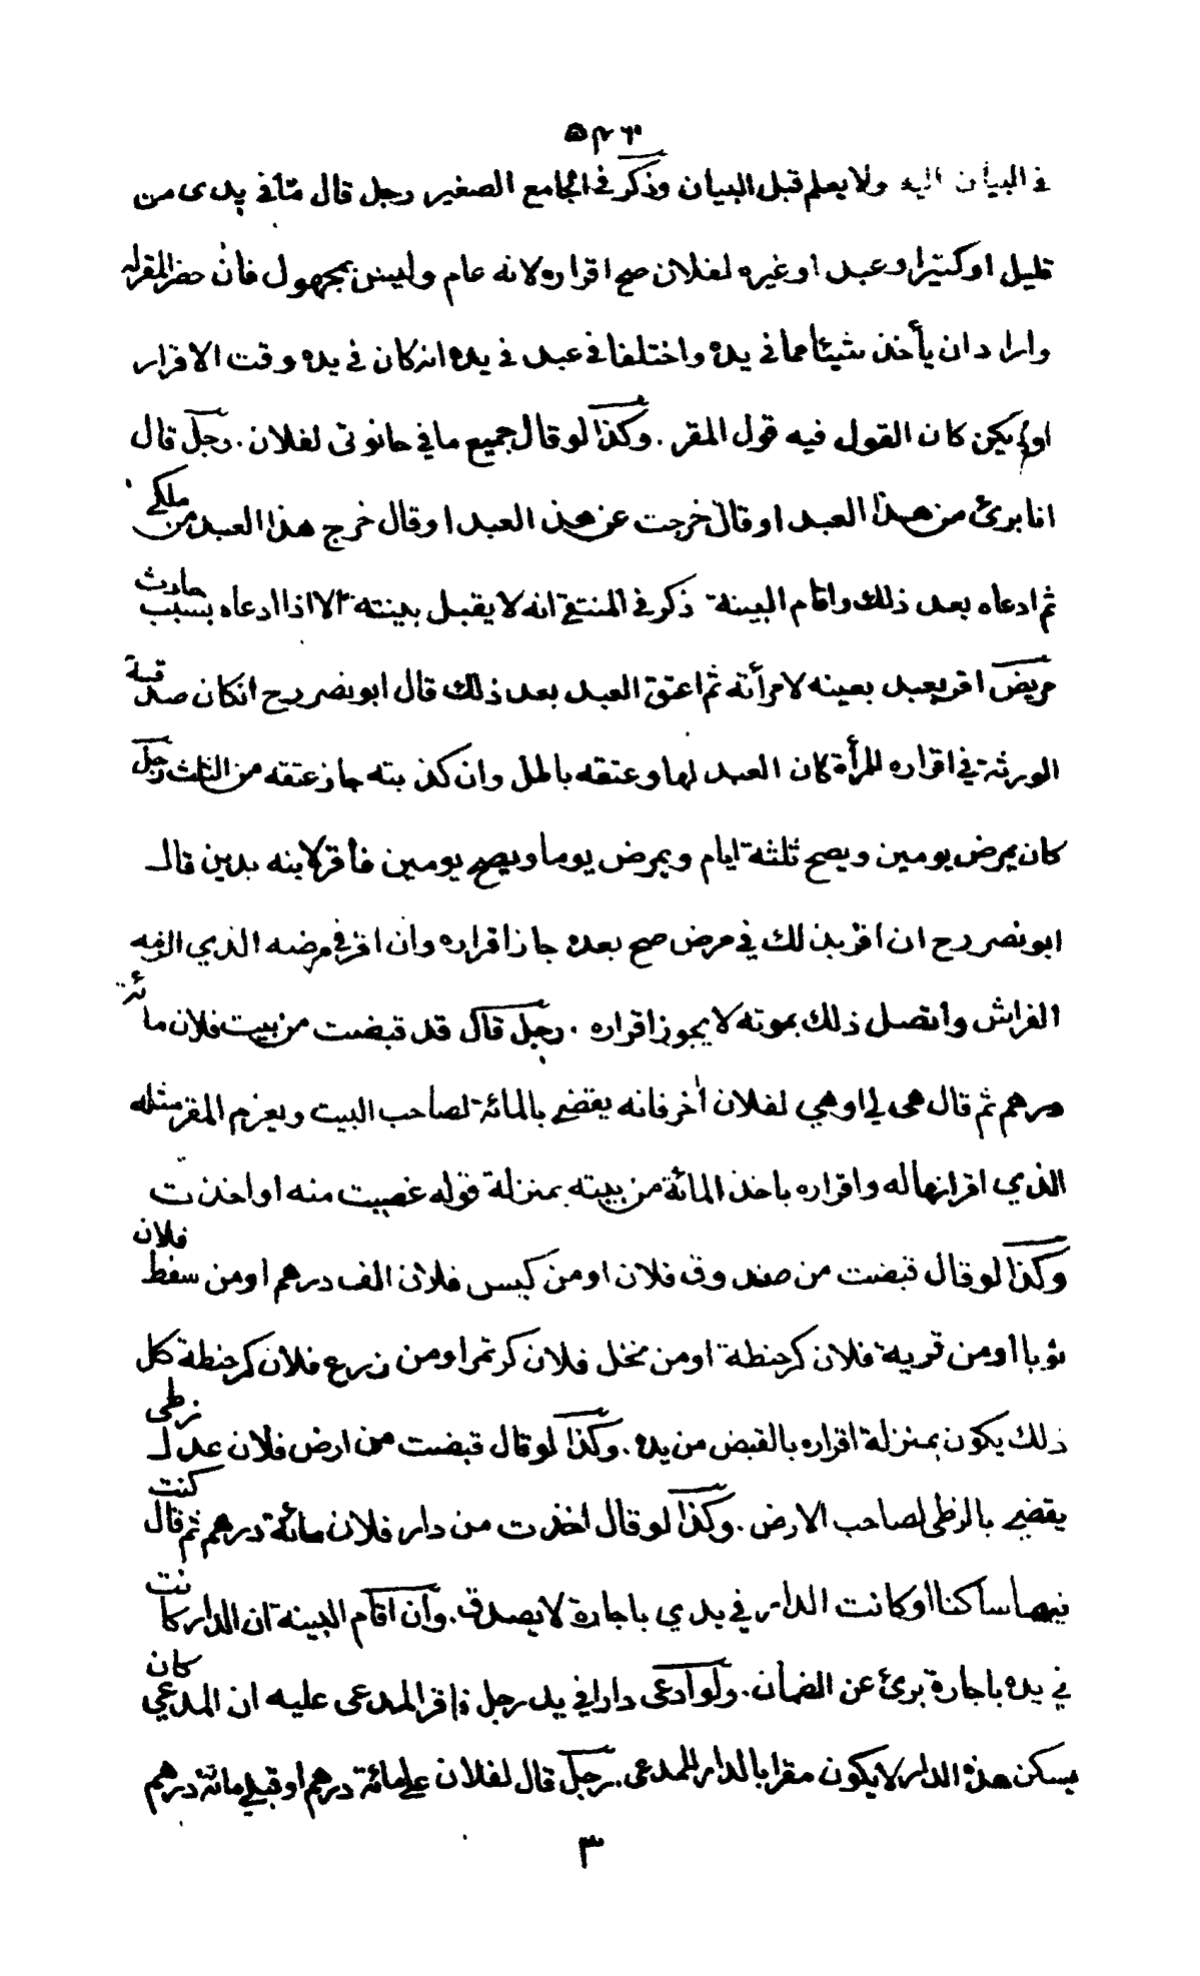 ٥٩٦
في البيان اليه ولا يعلم قبل البيان وذكر في الجامع الصغير رجل قال ما في يدى من
قليل او كثير او عبد او غيره لفلان صح اقراره لانه عام وليس بمجهول فان حضر المقر له
واراد ان يأخذ شيئا مما في يده واختلفا في عبد في يده انه كان في يده وقت الاقرار
او لم يكن كان القول فيه قول المقر . وكذا لو قال جميع ما في حانوتى لفلان . رجل قال
انا برئ من هذا العبد او قال خرجت عن هذا العبد او قال خرج هذا العبد من ملكي
ثم ادعاه بعد ذلك واقام البينة ذكر في المنتقى انه لا يقبل بينته الا اذا ادعاه بسبب حادث
مريض اقر بعبد بعينه لامرأته ثم اعتق العبد بعد ذلك قال ابو نصر رح ان كان صدقته
الورثة في اقراره للمرأة كان العبد لها وعتقه باطل وان كذبته جاز عتقه من الثلث رجل
كان يمرض يومين ويصح ثلثة ايام ويمرض يوما ويصح يومين فأقر لابنه بدين قال
ابو نصر رح ان اقر بذلك في مرض صح بعده جاز اقراره وان اقر في مرضه الذي الزمه
الفراش واتصل ذلك بموته لا يجوز اقراره . رجل قال قد قبضت من بيت فلان مائة
درهم ثم قال هى لي او هي لفلان آخر فانه يقضى بالمائة لصاحب البيت ويغرم المقر مثله
الذي اقر انها له واقراره باخذ المائة من بيته بمنزلة قوله غصبت منه او اخذت
وكذا لو قال قبضت من صندوق فلان او من كيس فلان الف درهم او من سفط فلان
ثوبا او من قرية فلان كر حنطة او من نخل فلان كر تمر او من زرع فلان كر حنطة كل
ذلك يكون بمنزلة اقراره بالقبض من يده . وكذا لو قال قبضت من ارض فلان عدل زطى
يقضى بالزطى لصاحب الارض . وكذا لو قال اخذت من دار فلان مائة درهم ثم قال كنت
فيها ساكنا او كانت الدار في يدي باجارة لا يصدق . وان اقام البينة ان الدار كانت
في يده باجارة برئ عن الضمان . ولو ادعى دارا في يد رجل فاقر المدعى عليه ان المدعي كان
يسكن هذه الدار لا يكون مقرا بالدار للمدعى . رجل قال لفلان علي مائة درهم او قبلي مائة درهم
٣